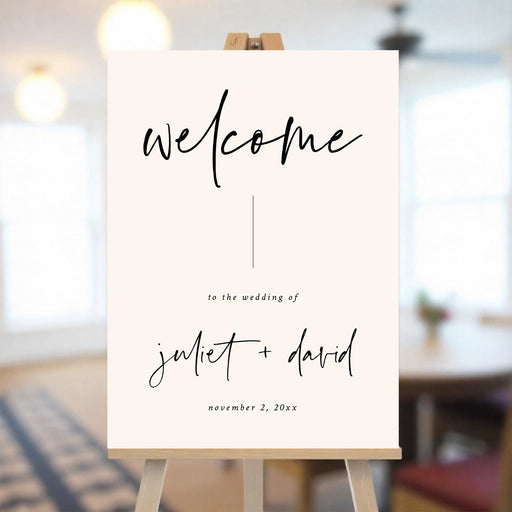 welcome
to the wedding of
juliet + david
november 2, 20xx